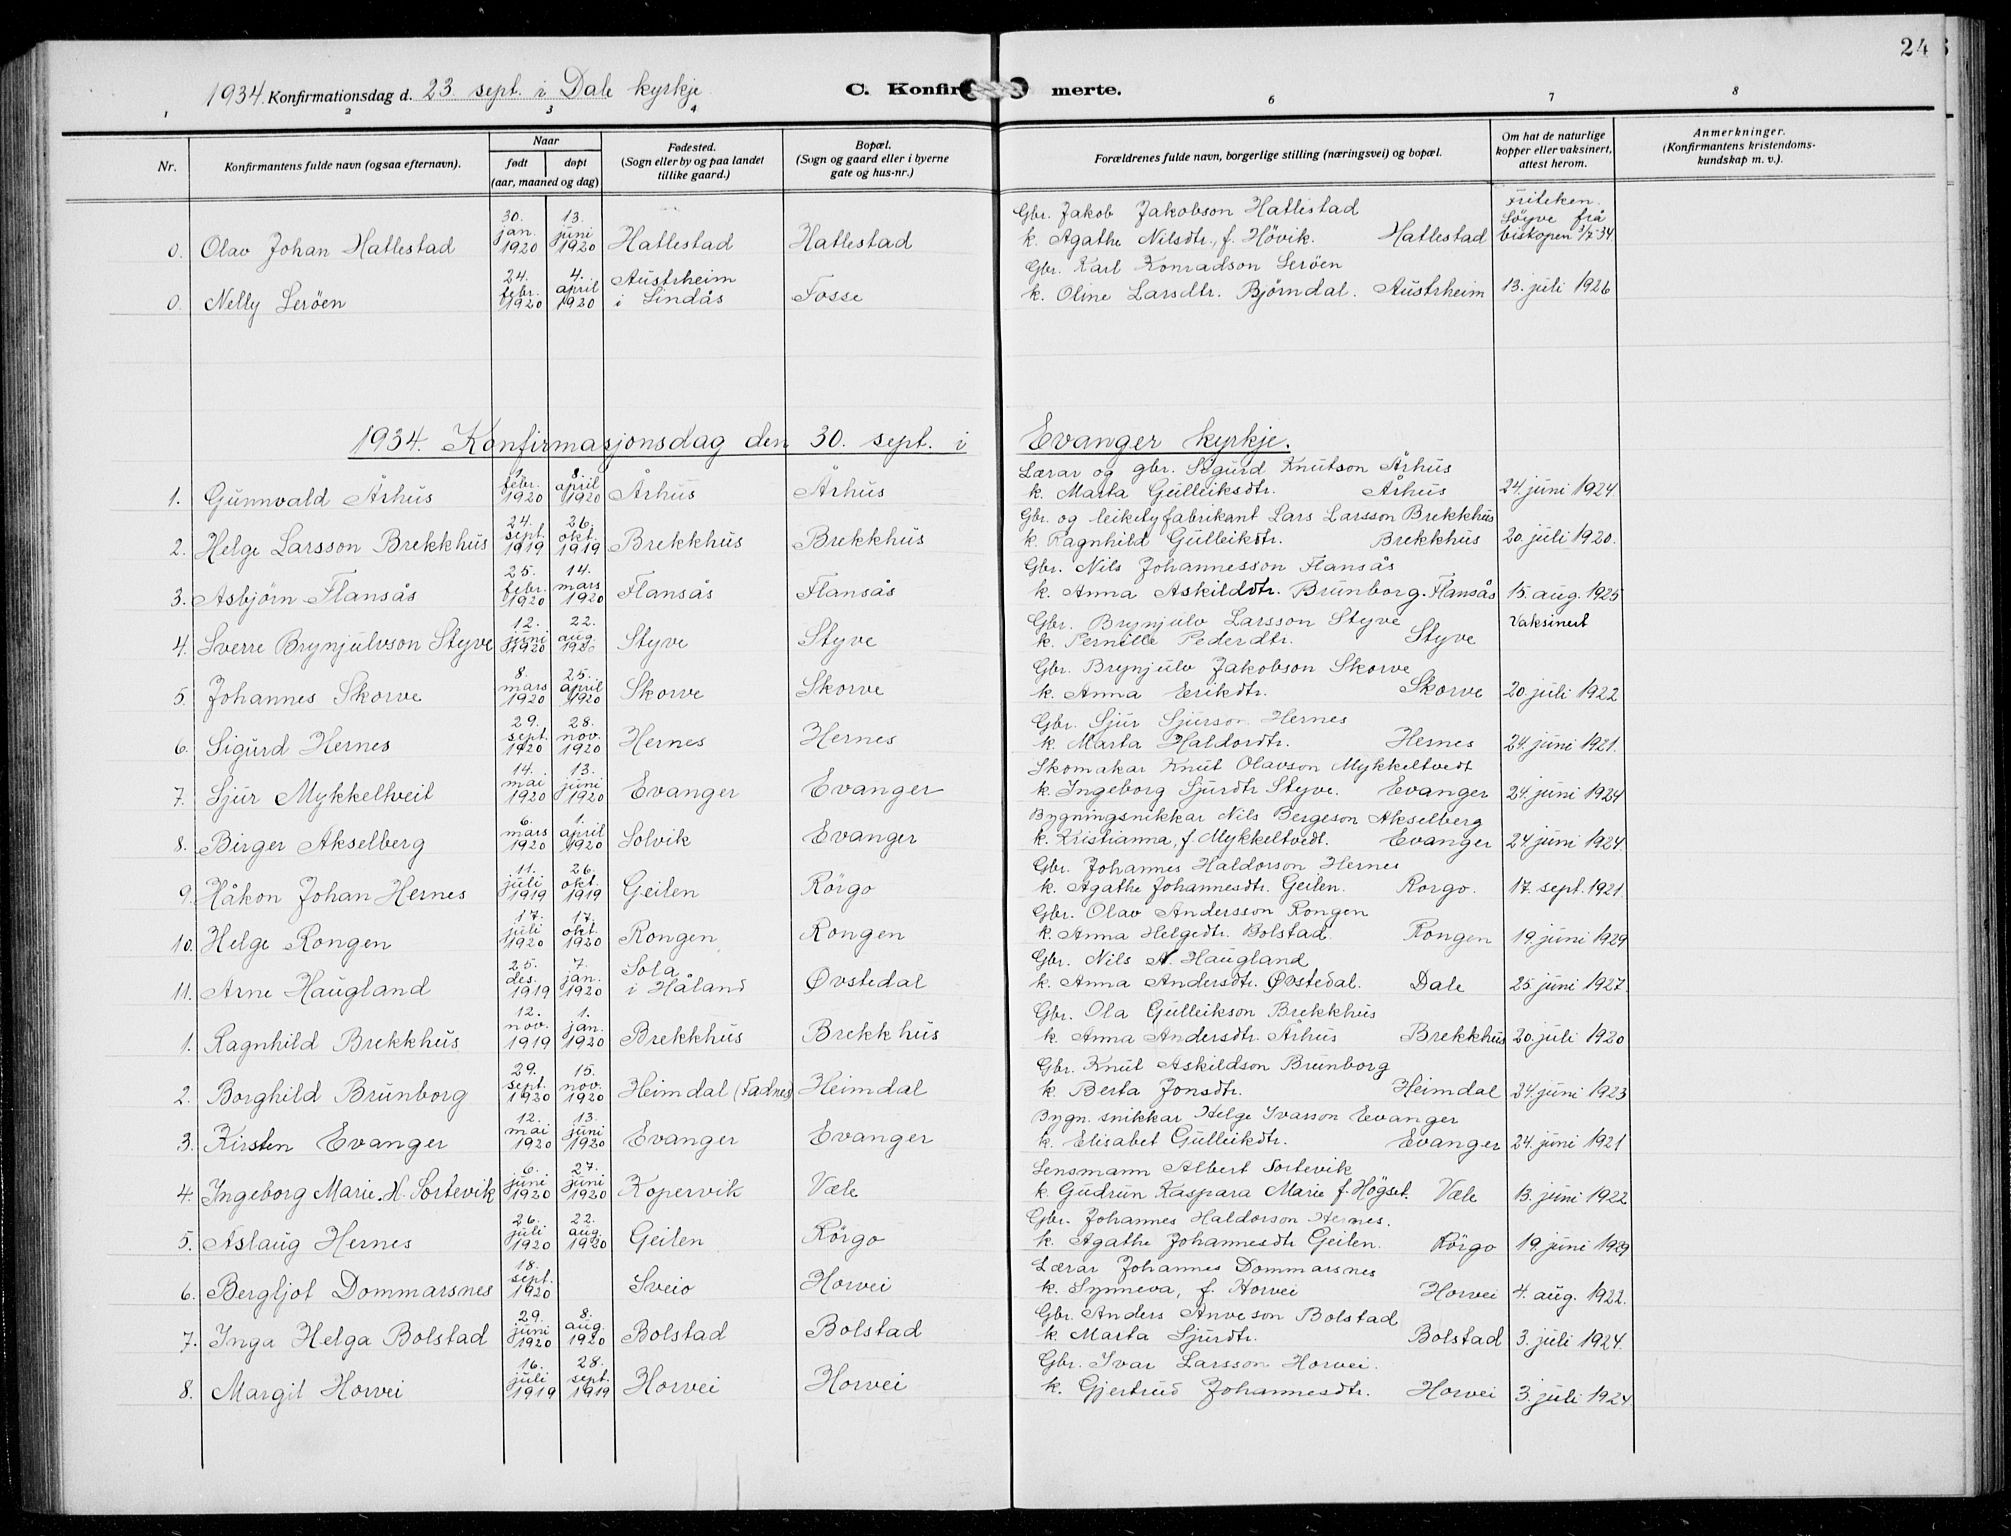 24
1934. Konfirmationsdag d. 23 sept. i Dale kyrkje
C. Konfir merte.
1 2 3 4 6 7 8
Nr. Konfirmantens fulde navn (ogsaa efternavn). Naar født døpt (aar, maaned og dag) Fødested. (Sogn eller by og paa landet tillike gaard.) Bopæl. (Sogn og gaard eller i byerne gate og hus-nr.) Forældrenes fulde navn, borgerlige stilling (næringsvei) og bopæl. Om hat de naturlige kopper eller vaksinert, attest herom. Anmerkninger. (Konfirmantens kristendoms-kundskap m. v.).
0. Olav Johan Hatlestad 30. jan. 1920 13. juni 1920 Hatlestad Hatlestad Gbr. Jakob Jakobson Hatlestad k. Agathe Nilsdtr., f. Hövik. Hatlestad Friteken. Löyve frå biskopen 3/7 34
0. Nelly Leröen 24. febr. 1920 4. april 1920 Austrheim i Lindås Fosse Gbr. Karl Konradson Leröen k. Oline Larsdtr. Björndal. Austrheim 13. juli 1926
1934. Konfirmasjonsdag den 30. sept. i Evanger kyrkje.
1. Gunnvald Århus 1. febr. 1920 8. april 1920 Århus Århus Lærar og gbr. Sigurd Knutson Århus k. Marta Gulleiksdtr. Århus 24. juni 1924
2. Helge Larsson Brekkhus 24. sept. 1919 26. okt. 1919 Brekkhus Brekkhus Gbr. og leiketyfabrikant Lars Larsson Brekkhus k. Ragnhild Gulleikdtr. Brekkhus 20. juli 1920.
3. Asbjörn Flansås 25. febr. 1920 14. mars 1920 Flansås Flansås Gbr. Nils Johannesson Flansås k. Anna Askilddtr. Brunborg. Flansås 15. aug. 1925
4. Sverre Brynjulvson Styve 12. juni 1920 22. aug. 1920 Styve Styve Gbr. Brynjulv Larsson Styve k. Pernille Pederdtr. Styve Vaksinert
5. Johannes Skorve 8. mars 1920 25. april 1920 Skorve Skorve Gbr. Brynjulv Jakobson Skorve k. Anna Erikdtr. Skorve 20. juli 1922
6. Sigurd Hernes 29. sept. 1920 28. nov. 1920 Hernes Hernes Gbr. Sjur Sjurson Hernes k. Marta Haldordtr. Hernes 24. juni 1921.
7. Sjur Mykkeltveit 14. mai 1920 13. juni 1920 Evanger Evanger Skomakar Knut Olavson Mykkeltvedt k. Ingeborg Sjurdtr Styve. Evanger 24. juni 1924
8. Birger Akselberg 6. mars 1920 1. april 1920 Solvik Evanger Bygningsnikkar Nils Bergeson Akselberg k. Kristianna, f. Mykkeltvedt. Evanger 24. juni 1924.
9. Håkon Johan Hernes 11. juli 1919 26. okt. 1919 Geilen Rörgo Gbr. Johannes Haldorson Hernes k. Agathe Johannesdtr. Geilen. Rorgo. 17. sept. 1921
10. Helge Rongen 17. juli 1920 17. okt. 1920 Rongen Rongen Gbr. Olav Andersson Rongen k. Anna Helgedtr. Bolstad. Rongen 19. juni 1929
11. Arne Haugland 25. des. 1919 7. jan. 1920 Sola i Håland Øvstedal Gbr. Nils A. Haugland k. Anna Andersdtr. Øvstedal. Dale 25. juni 1927.
1. Ragnhild Brekkhus 12. nov. 1919 1. jan. 1920 Brekkhus Brekkhus Gbr. Ola Gulleikson Brekkhus k. Anna Andersdtr. Århus Brekkhus 20. juli 1920
2. Borghild Brunborg 29. sept. 1920 15. nov. 1920 Heimdal (Fadnes) Heimdal Gbr. Knut Askildson Brunborg k. Berta Jonsdtr. Heimdal 24. juni 1923
3. Kirsten Evanger 12. mai 1920 13. juni 1920 Evanger Evanger Bygn. snikkar Helge Ivarsson Evanger k. Elisabet Gulleikdtr. Evanger 24. juni 1921
4. Ingeborg Marie H. Sortevik 6. juni 1920 27. juni 1920 Kopervik Væle Lensmann Albert Sortevik k. Gudrun Kaspara Marie f. Högset. Væle 13. juni 1922
5. Aslaug Hernes 26. juli 1920 22. aug. 1920 Geilen Rörgo Gbr. Johannes Haldorson Hernes. k. Agathe Johannesdtr Geilen. Rörgo 19. juni 1929
6. Bergljot Dommarsnes 18. sept. 1920 Sveio Horvei Lærar Johannes Dommarsnes k. Synneva, f. Horvei Horvei 4. aug. 1922.
7. Inga Helga Bolstad 29. juni 1920 8. aug. 1920 Bolstad Bolstad Gbr. Anders Anveson Bolstad k. Marta Sjurdtr. Bolstad 3. juli 1924.
8. Margit Horvei 16. juli 1919 28. sept. 1919 Horvei Horvei Gbr. Ivar Larsson Horvei. k. Gjertrud Johannesdtr. Horvei 3. juli 1924